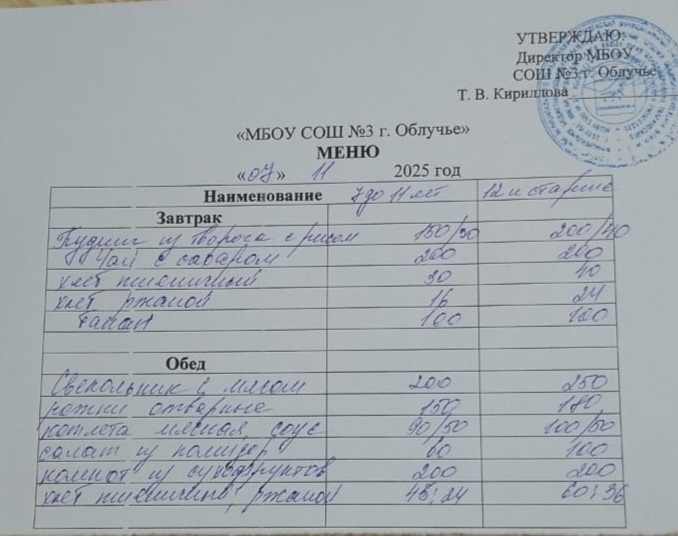 УТВЕРЖДАЮ:
Директор МБОУ
СОШ №3 г. Облучье
Т. В. Кириллова
«МБОУ СОШ №3 г. Облучье»
МЕНЮ
«07» 11 2025 год
Наименование 7 до 11 лет 12 и старше
Завтрак
Пудинг из творога с рисом 150/30 200/40
Чай с сахаром 200 200
хлеб пшеничный 30 40
хлеб ржаной 16 24
банан 100 100
Обед
Свекольник с мясом 200 250
рожки отварные 150 180
котлета мясная, соус 90/50 100/50
салат из помидор 60 100
компот из сухофруктов 200 200
хлеб пшеничный; ржаной 45; 24 60; 36